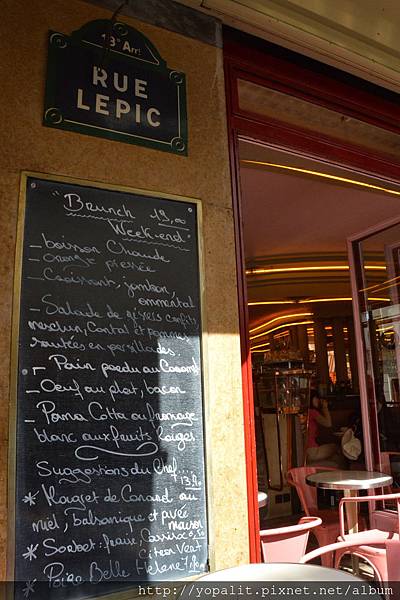 18e Arrt
RUE
LEPIC
"Brunch 19,00
Week-end"
- boisson Chaude
- orange pressée
- Croissants, jambon,
emmental
- Salade de gésiers confits
mesclun, Cantal et pommes
sautées en persillades.
- Pain perdu au Caramel
- Oeuf au plat, bacon
- Pana Cotta au fromage
blanc aux fruits Rouges.
Suggestions du Chef...
* Magret de Canard au
miel, balsamique et purée
maison
* Sorbet: fraise, Cassis
Citron Vert
* Poire Belle Hélène
http://yopalit.pixnet.net/album